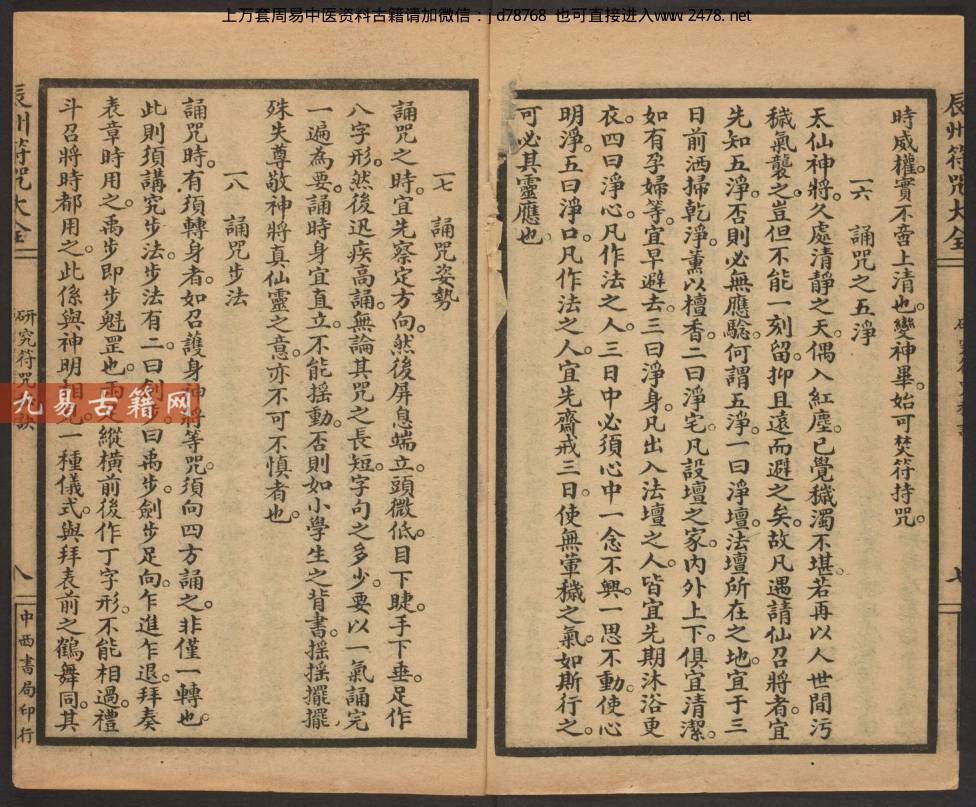 上万套周易中医资料古籍请加微信：jd78768 也可直接进入www.2478.net
辰州符咒大全
七
時威權。實不啻上清也。變神畢。始可焚符持咒。
一六 誦咒之五淨
天仙神將。久處清靜之天。偶入紅塵。已覺穢濁不堪。若再以人世間污
穢氣襲之。豈但不能一刻留。抑且遠而避之矣。故凡遇請仙召將者。宜
先知五淨。否則必無應騐。何謂五淨。一曰淨壇。法壇所在之地。宜于三
日前洒掃乾淨。薰以檀香。二曰淨宅。凡設壇之家。內外上下。俱宜清潔。
如有孕婦等。宜早避去。三曰淨身。凡出入法壇之人。皆宜先期沐浴更
衣。四曰淨心。凡作法之人。三日中必須心中一念不興。一思不動。使心
明淨。五曰淨口。凡作法之人。宜先齋戒三日。使無葷穢之氣。如斯行之。
可必其靈應也。
一七 誦咒姿勢
誦咒之時。宜先察定方向。然後屏息端立。頭微低。目下睫。手下垂。足作
八字形。然後迅疾高誦。無論其咒之長短。字句之多少。要以一氣誦完
一遍為要。誦時身宜直立。不能搖動。否則如小學生之背書。搖搖擺擺
殊失尊敬神將真仙靈之意。亦不可不慎者也。
一八 誦咒步法
誦咒時。有須轉身者。如召護身神將等咒。須向四方誦之。非僅一轉也。
此則須講究步法。步法有二。曰劍步。曰禹步。劍步足向。乍進乍退。拜奏
表章時用之。禹步即步魁罡也。縱橫前後作丁字形。不能相過。禮
斗召將時都用之。此係與神明相一種儀式。與拜表前之鶴舞同。其
辰州符咒大全
研究符咒訣
八
中西書局印行
九易古籍网